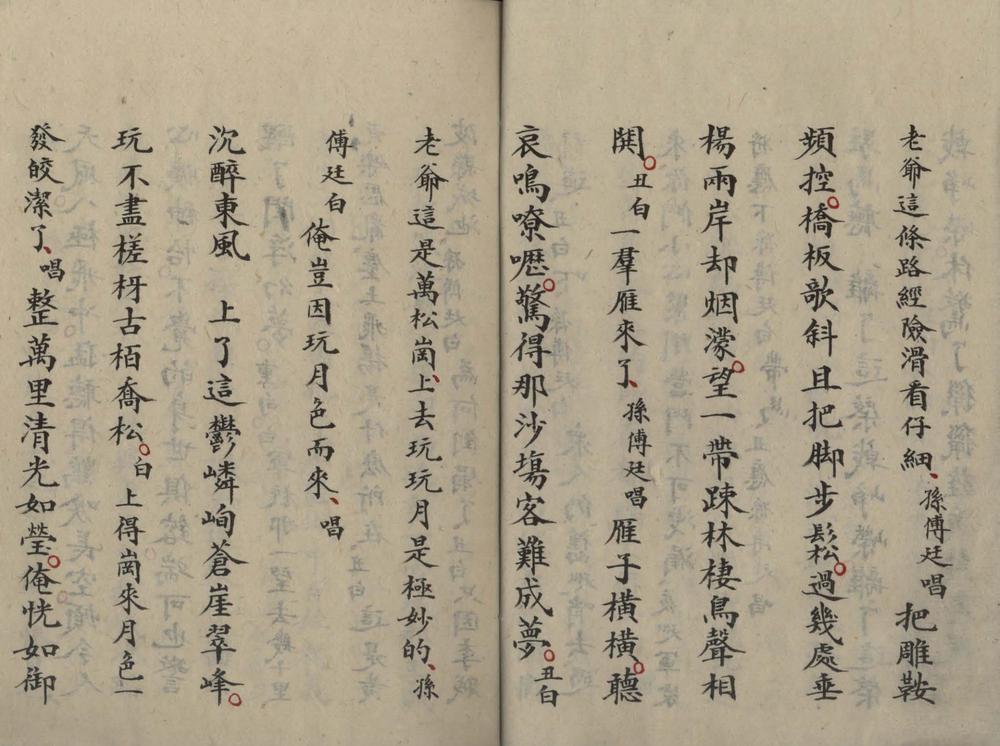 老爺這條路經險滑看仔細、孫傅廷唱把雕鞍
頻控。橋板歌斜且把脚步鬆。過幾處垂
楊兩岸却烟濛。望一帶踈林棲鳥聲相
閧。丑白一羣雁來了、孫傅廷唱雁子橫橫。聽
哀鳴嘹嚦。驚得那沙塲客難成夢。丑白
老爺這是萬松崗、上去玩玩月是極妙的、孫
傅廷白俺豈因玩月色而來、唱
沉醉東風 上了這鬱嶙峋蒼崖翠峰。
玩不盡槎枒古栢喬松。白上得崗來月色一
發皎潔了、唱整萬里清光如瑩。俺恍如御